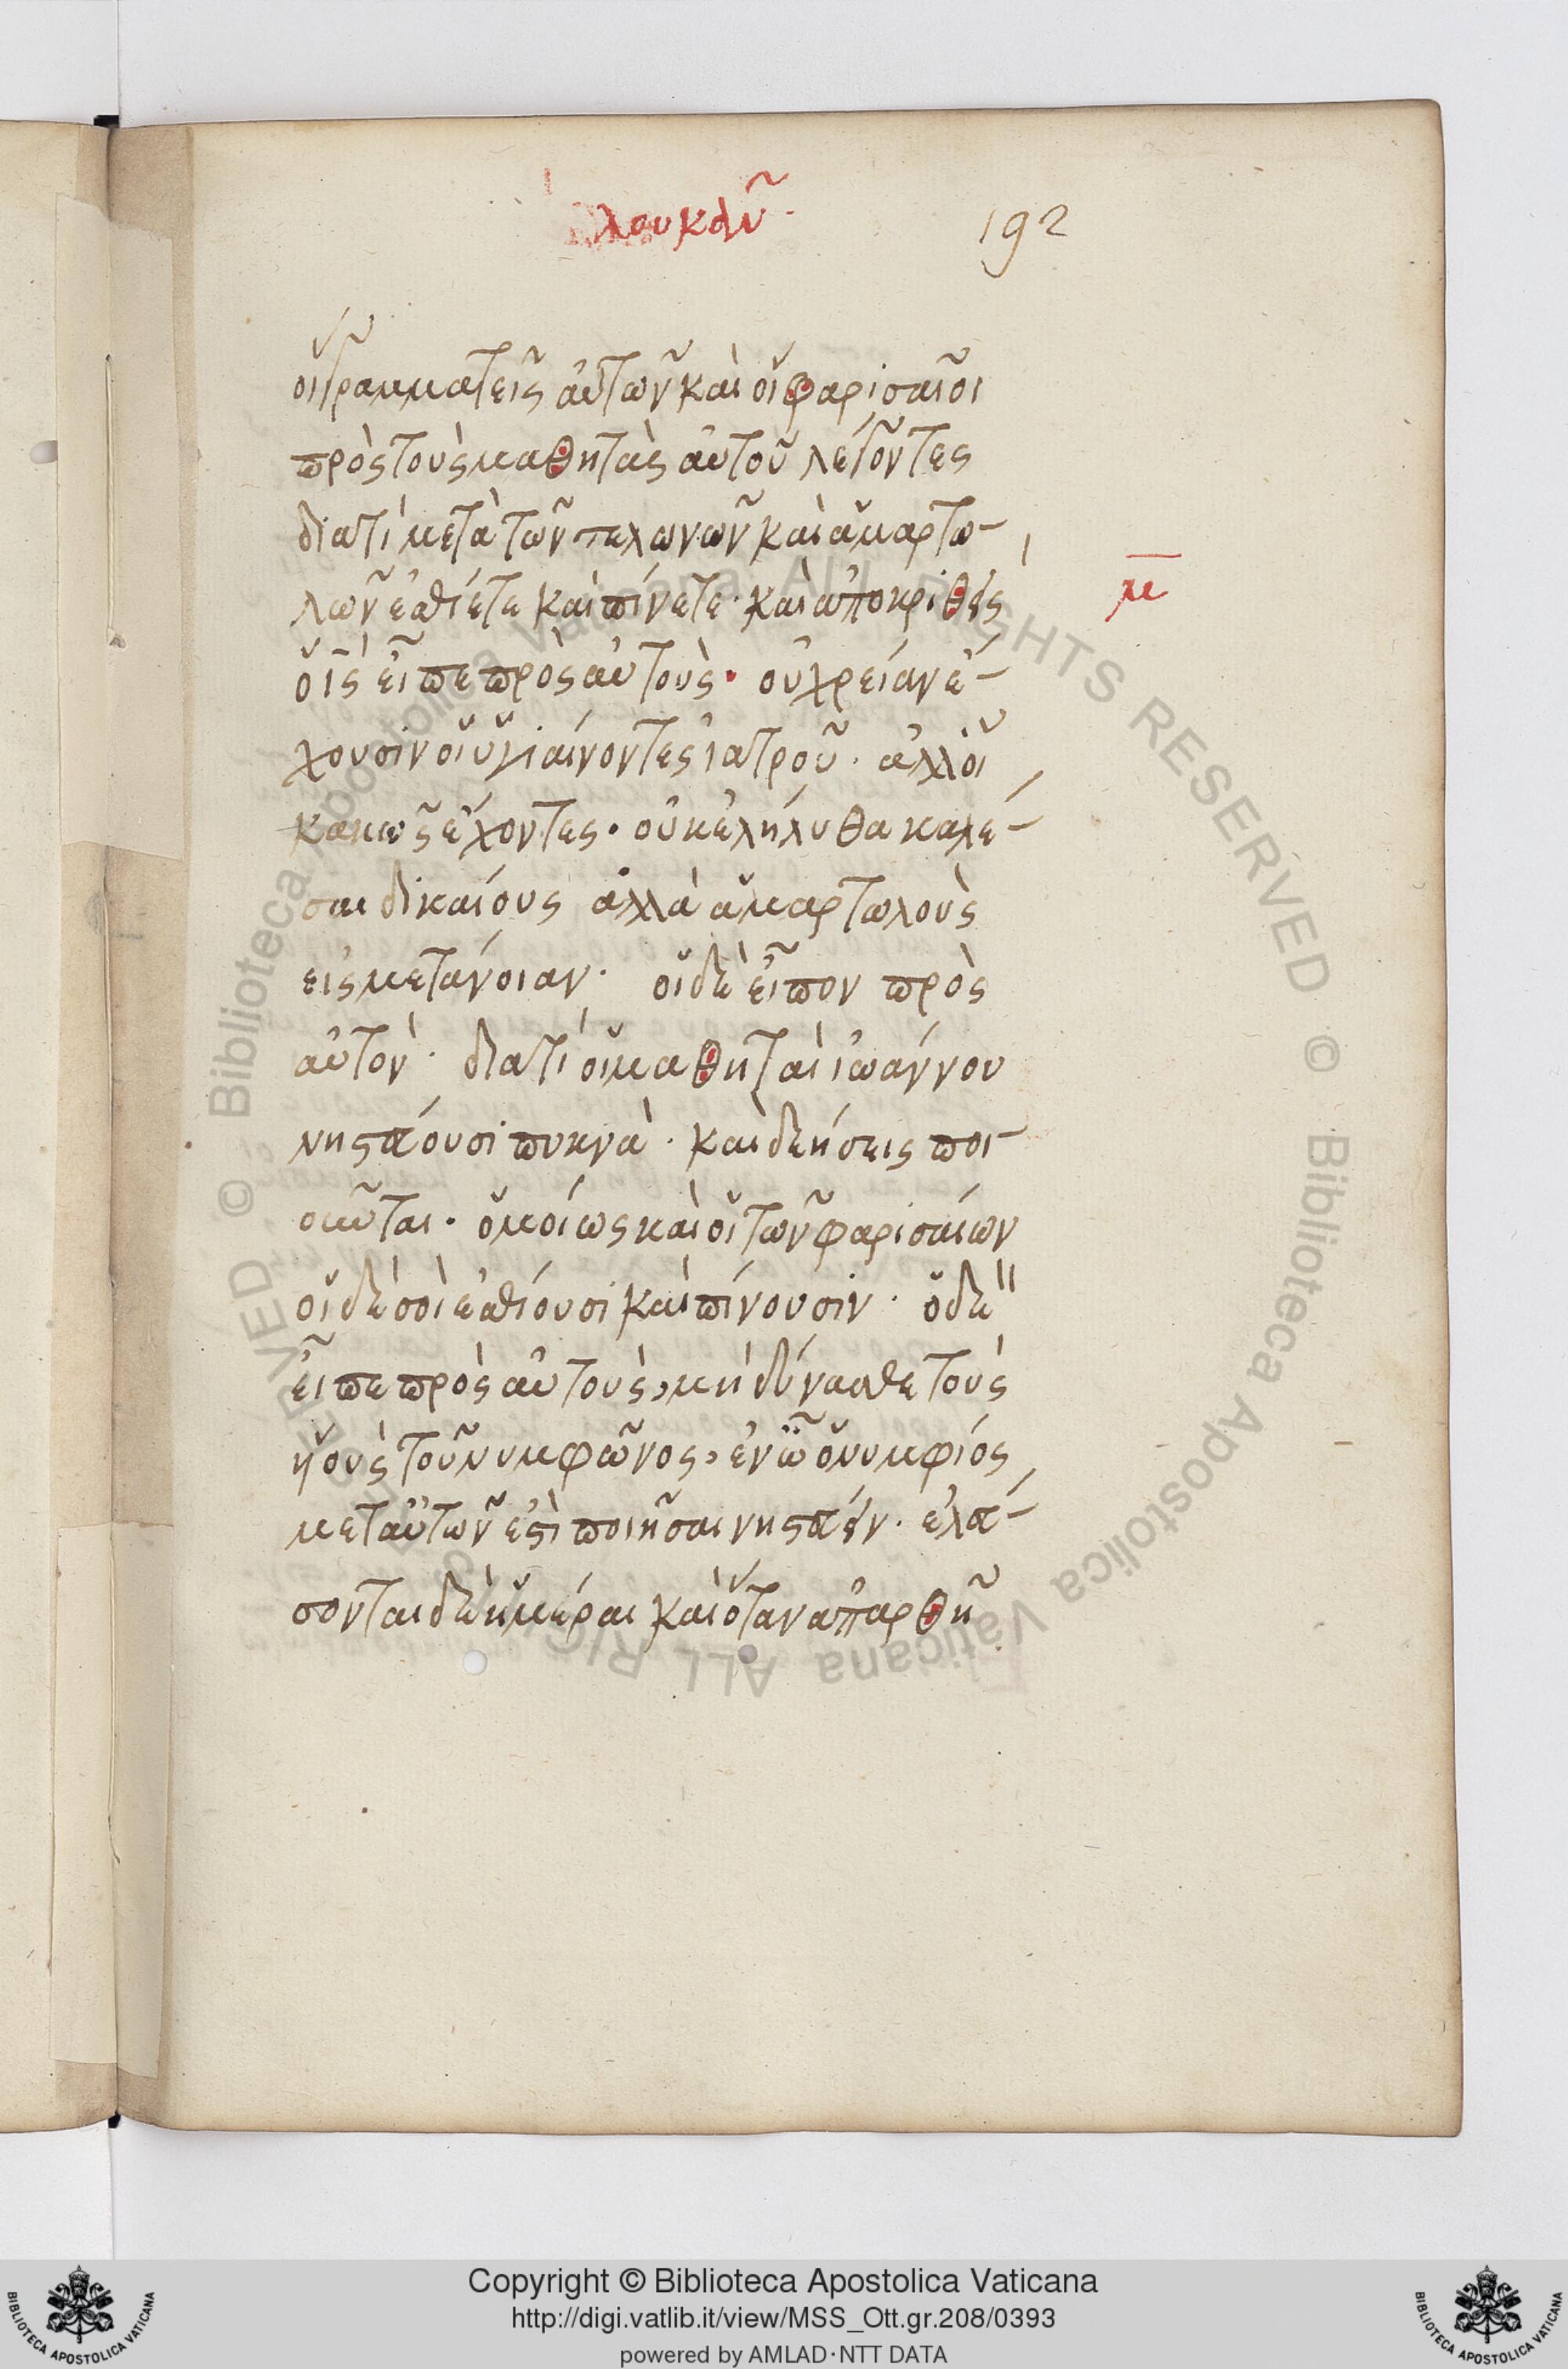 λουκᾶν
192
οἱ γραμματεῖς αὐτῶν καὶ οἱ φαρισαῖοι
πρὸς τοὺς μαθητὰς αὐτοῦ λέγοντες
διατί μετὰ τῶν τελωνῶν καὶ ἁμαρτω-
λῶν ἐσθίετε καὶ πίνετε· καὶ ἀποκριθεὶς
μ
ὁ ις εἶπε πρὸς αὐτούς· οὐ χρείαν ἔ-
χουσιν οἱ ὑγιαίνοντες ἰατροῦ· ἀλλ οἱ
κακῶς ἔχοντες· οὐκ ἐλήλυθα καλέ-
σαι δικαίους ἀλλὰ ἁμαρτωλοὺς
εἰς μετάνοιαν· οἱ δὲ εἶπον πρὸς
αὐτόν· διατί οἱ μαθηταὶ ἰωάννου
νηστεύουσι πυκνὰ· καὶ δεήσεις ποι
οῦνται· ὁμοίως καὶ οἱ τῶν φαρισαίων
οἱ δὲ σοὶ ἐσθίουσι καὶ πίνουσιν· ὁ δὲ
εἶπε πρὸς αὐτοὺς, μὴ δύνασθε τοὺς
υἱοὺς τοῦ νυμφῶνος, ἐν ᾧ ὁ νυμφίος
μετ αὐτῶν ἐστὶ ποιῆσαι νηστεύειν· ἐλεύ-
σονται δὲ ἡμέραι καὶ ὅταν ἀπαρθῆ
Copyright © Biblioteca Apostolica Vaticana
http://digi.vatlib.it/view/MSS_Ott.gr.208/0393
powered by AMLAD·NTT DATA
© Biblioteca Apostolica Vaticana ALL RIGHTS RESERVED
© Biblioteca Apostolica Vaticana ALL RIGHTS RESERVED
BIBLIOTECA APOSTOLICA VATICANA
BIBLIOTECA APOSTOLICA VATICANA